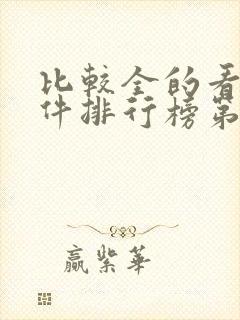 比较全的看
件排行榜第
赢紫华